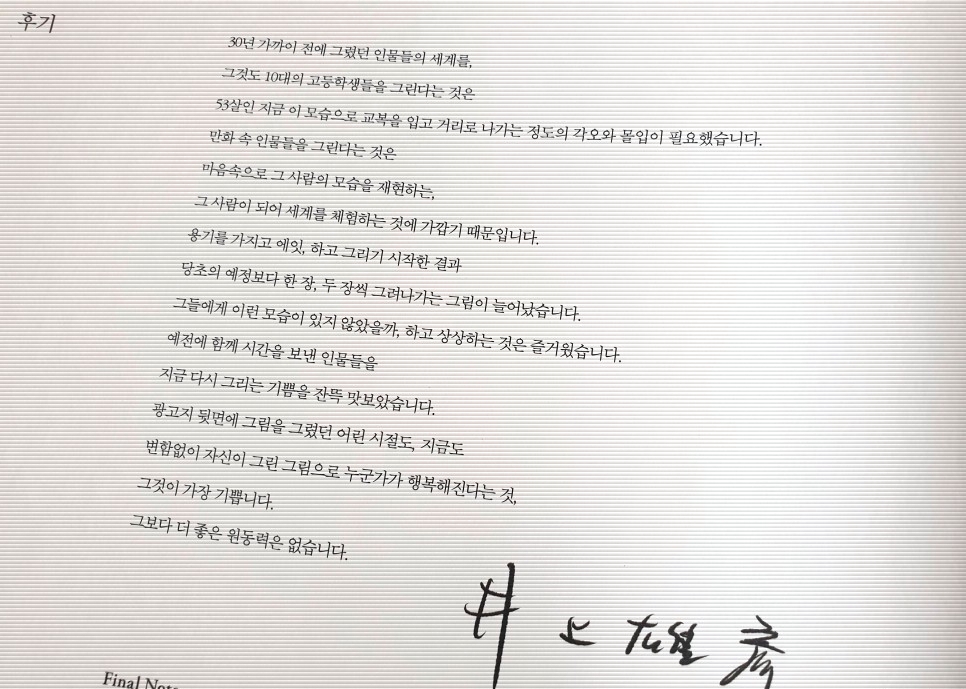 후기
30년 가까이 전에 그렸던 인물들의 세계를,
그것도 10대의 고등학생들을 그린다는 것은
53살인 지금 이 모습으로 교복을 입고 거리로 나가는 정도의 각오와 몰입이 필요했습니다.
만화 속 인물들을 그린다는 것은
마음속으로 그 사람의 모습을 재현하는,
그 사람이 되어 세계를 체험하는 것에 가깝기 때문입니다.
용기를 가지고 에잇, 하고 그리기 시작한 결과
당초의 예정보다 한 장, 두 장씩 그려나가는 그림이 늘어났습니다.
그들에게 이런 모습이 있지 않았을까, 하고 상상하는 것은 즐거웠습니다.
예전에 함께 시간을 보낸 인물들을
지금 다시 그리는 기쁨을 잔뜩 맛보았습니다.
광고지 뒷면에 그림을 그렸던 어린 시절도, 지금도
변함없이 자신이 그린 그림으로 누군가가 행복해진다는 것,
그것이 가장 기쁩니다.
그보다 더 좋은 원동력은 없습니다.
井上雄彦
Final